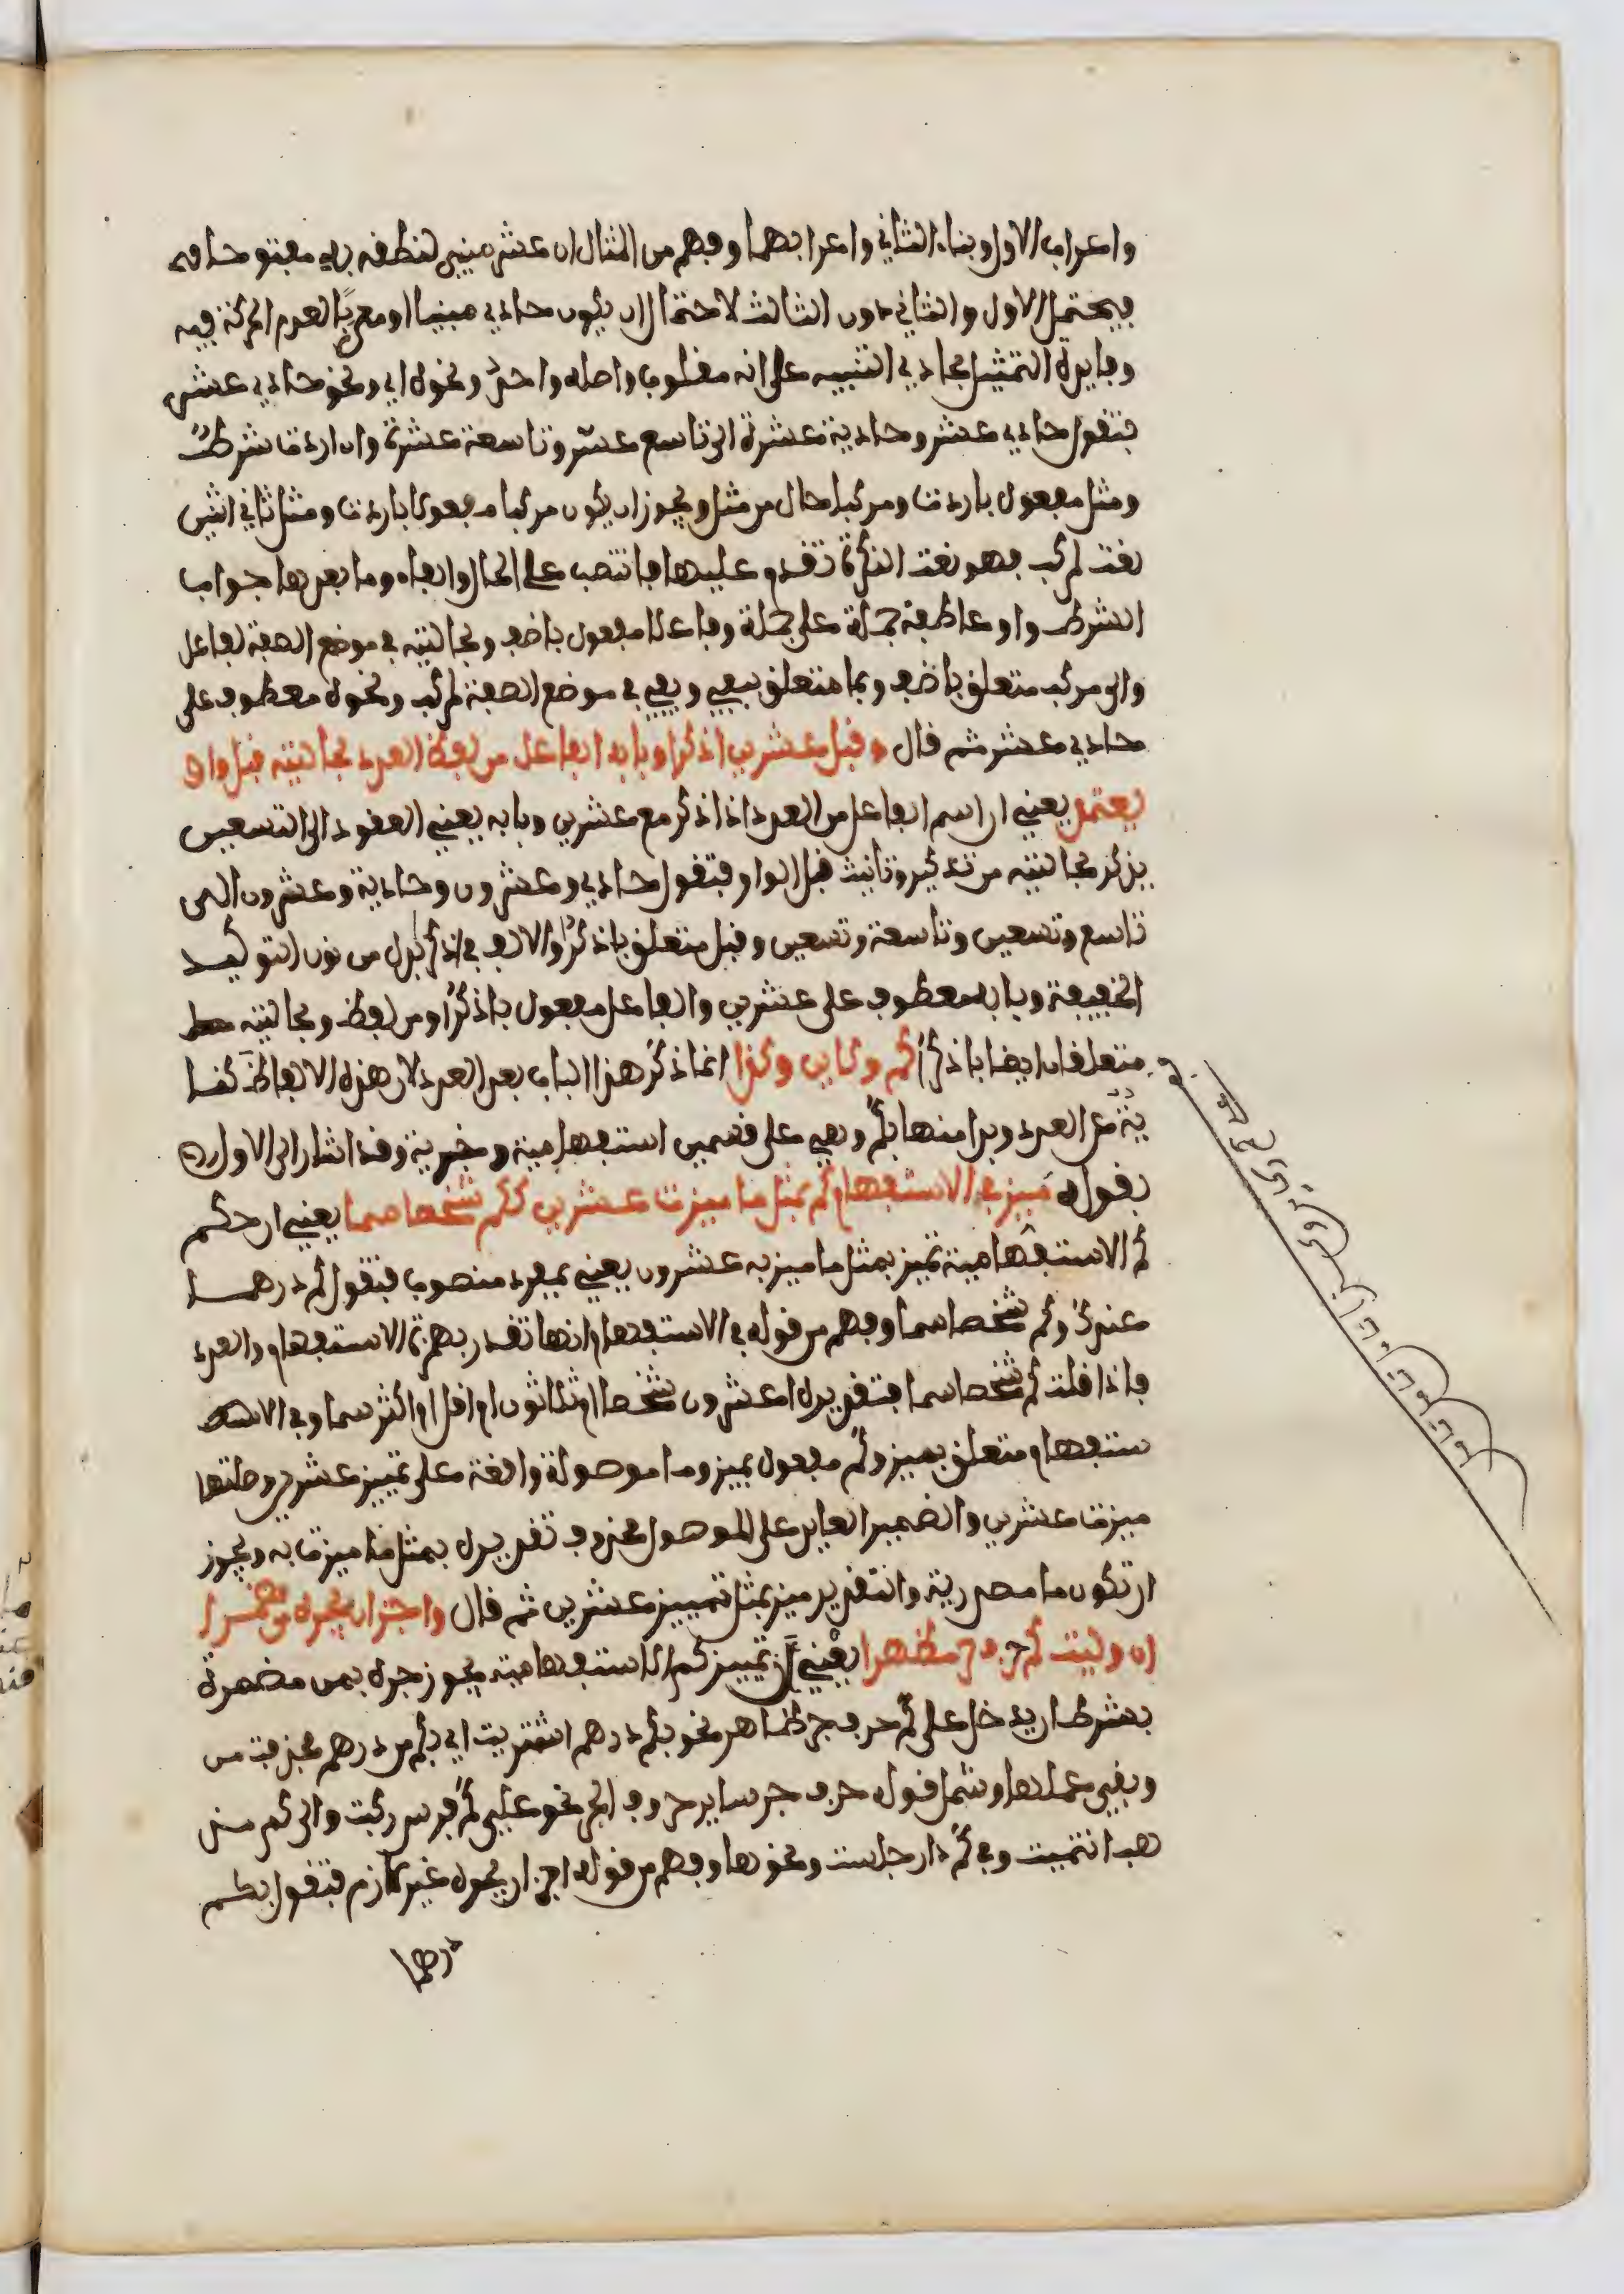 واعراب الاول وبناء الثاني واعرابهما وفهم من المثال ان عشر مبني لنطقه به مفتوحا
فيحتمل الاول والثاني دون الثالث لاحتمال ان يكون حادي مبنيا او معربا لعدم الحركة فيه
وفايدة التمثيل بحادي التنبيه على انه مقلوب واصله واحد ونحوه اي ونحو حادي عشر
فتقول حادي عشر وحادية عشرة الى تاسع عشر وتاسعة عشرة وان اردت شرط
ومثل مفعول باردت ومركبا حال من مثل ويجوز ان يكون مركبا مفعولا باردت ومثل ثاني اثنين
نعت لمركب فهو نعت النكرة تقدم عليها فانتصب على الحال والفاء وما بعدها جواب
الشرط واو عاطفة جملة على جملة وفاعلا مفعول باضف وبحالتيه في موضع الصفة لفاعل
والى مركب متعلق باضف وبما متعلق بيفي ويفي في موضع الصفة لمركب ونحوه معطوف على
حادي عشر ثم قال وقبل عشرين اذكرا وبابه الفاعل من لفظ العدد بحالتيه قبل واو
يعتمد يعني ان اسم الفاعل من العدد اذا ذكر مع عشرين وبابه يعني العقود الى التسعين
يذكر بحالتيه من تذكير وتانيث قبل الواو فتقول حادي وعشرون وحادية وعشرون الى
تاسع وتسعين وتاسعة وتسعين وقبل متعلق باذكرا والالف في اذكرا بدل من نون التوكيد
الخفيفة وبابه معطوف على عشرين والفاعل مفعول باذكرا ومن لفظ وبحالتيه
متعلقان ايضا باذكرا كم وكاين وكذا انما ذكر هذا الباب بعد العدد لان هذه الالفاظ كنا
ية عن العدد وبدا منها بكم وهي على قسمين استفهامية وخبرية وقد اشار الى الاول
بقوله ميز في الاستفهام كم بمثل ما ميزت عشرين ككم شخصا سما يعني ان حكم
كم الاستفهامية تميز بمثل ما ميز به عشرون يعني بمفرد منصوب فتقول كم درهما
عندك وكم شخصا سما وفهم من قوله في الاستفهام انها تقدر بهمزة الاستفهام والعدد
فاذا قلت كم شخصا سما فتقديره اعشرون شخصا ام ثلاثون ام اقل ام اكثر سما وفي الا
ستفهام متعلق بميز وكم مفعول بميز وما موصولة واقعة على تمييز عشرين وصلتها
ميزت عشرين والضمير العايد على الموصول محذوف تقديره بمثل ما ميزت به ويجوز
ان تكون ما مصدرية والتقدير ميز بمثل تمييز عشرين ثم قال واجز ان تجره من مضمرا
ان وليت كم حرف جر مظهرا يعني ان تمييز كم الاستفهامية يجوز جره بمن مضمرة
بشرط ان يدخل على كم حرف جر ظاهر نحو بكم درهم اشتريت اي بكم من درهم فحذفت من
وبقي عملها وشمل قوله حرف جر ساير حروف الجر نحو على كم فرس ركبت والى كم مذ
هب انتميت وفي كم دار جلست ونحوها وفهم من قوله اجز ان تجره غير لازم فتقول بكم
درهما